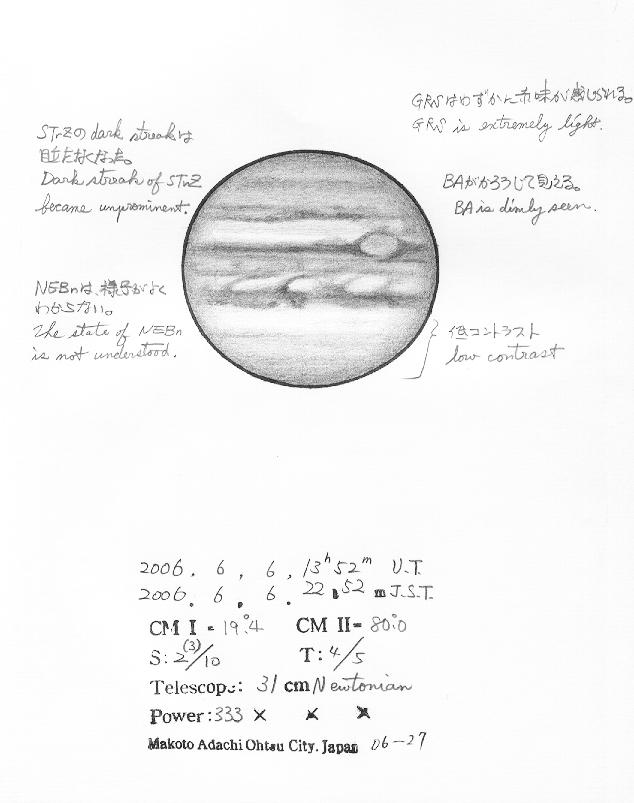 GRSはわずかに赤味が感じられる。
GRS is extremely light.
STrZのdark streakは
目立たなくなった。
Dark streak of STrZ
became unprominent.
BAがかろうじて見える。
BA is dimly seen.
NEBnは、様子がよく
わからない。
The state of NEBn
is not understood.
低コントラスト
low contrast
2006. 6, 6, 13h 52m U.T.
2006. 6. 6. 22 52 m J.S.T.
CM I = 19°.4 CM II= 80°.0
S: 2(3)/10 T: 4/5
Telescope: 31 cm Newtonian
Power: 333 × × ×
Makoto Adachi Ohtsu City. Japan 06-27